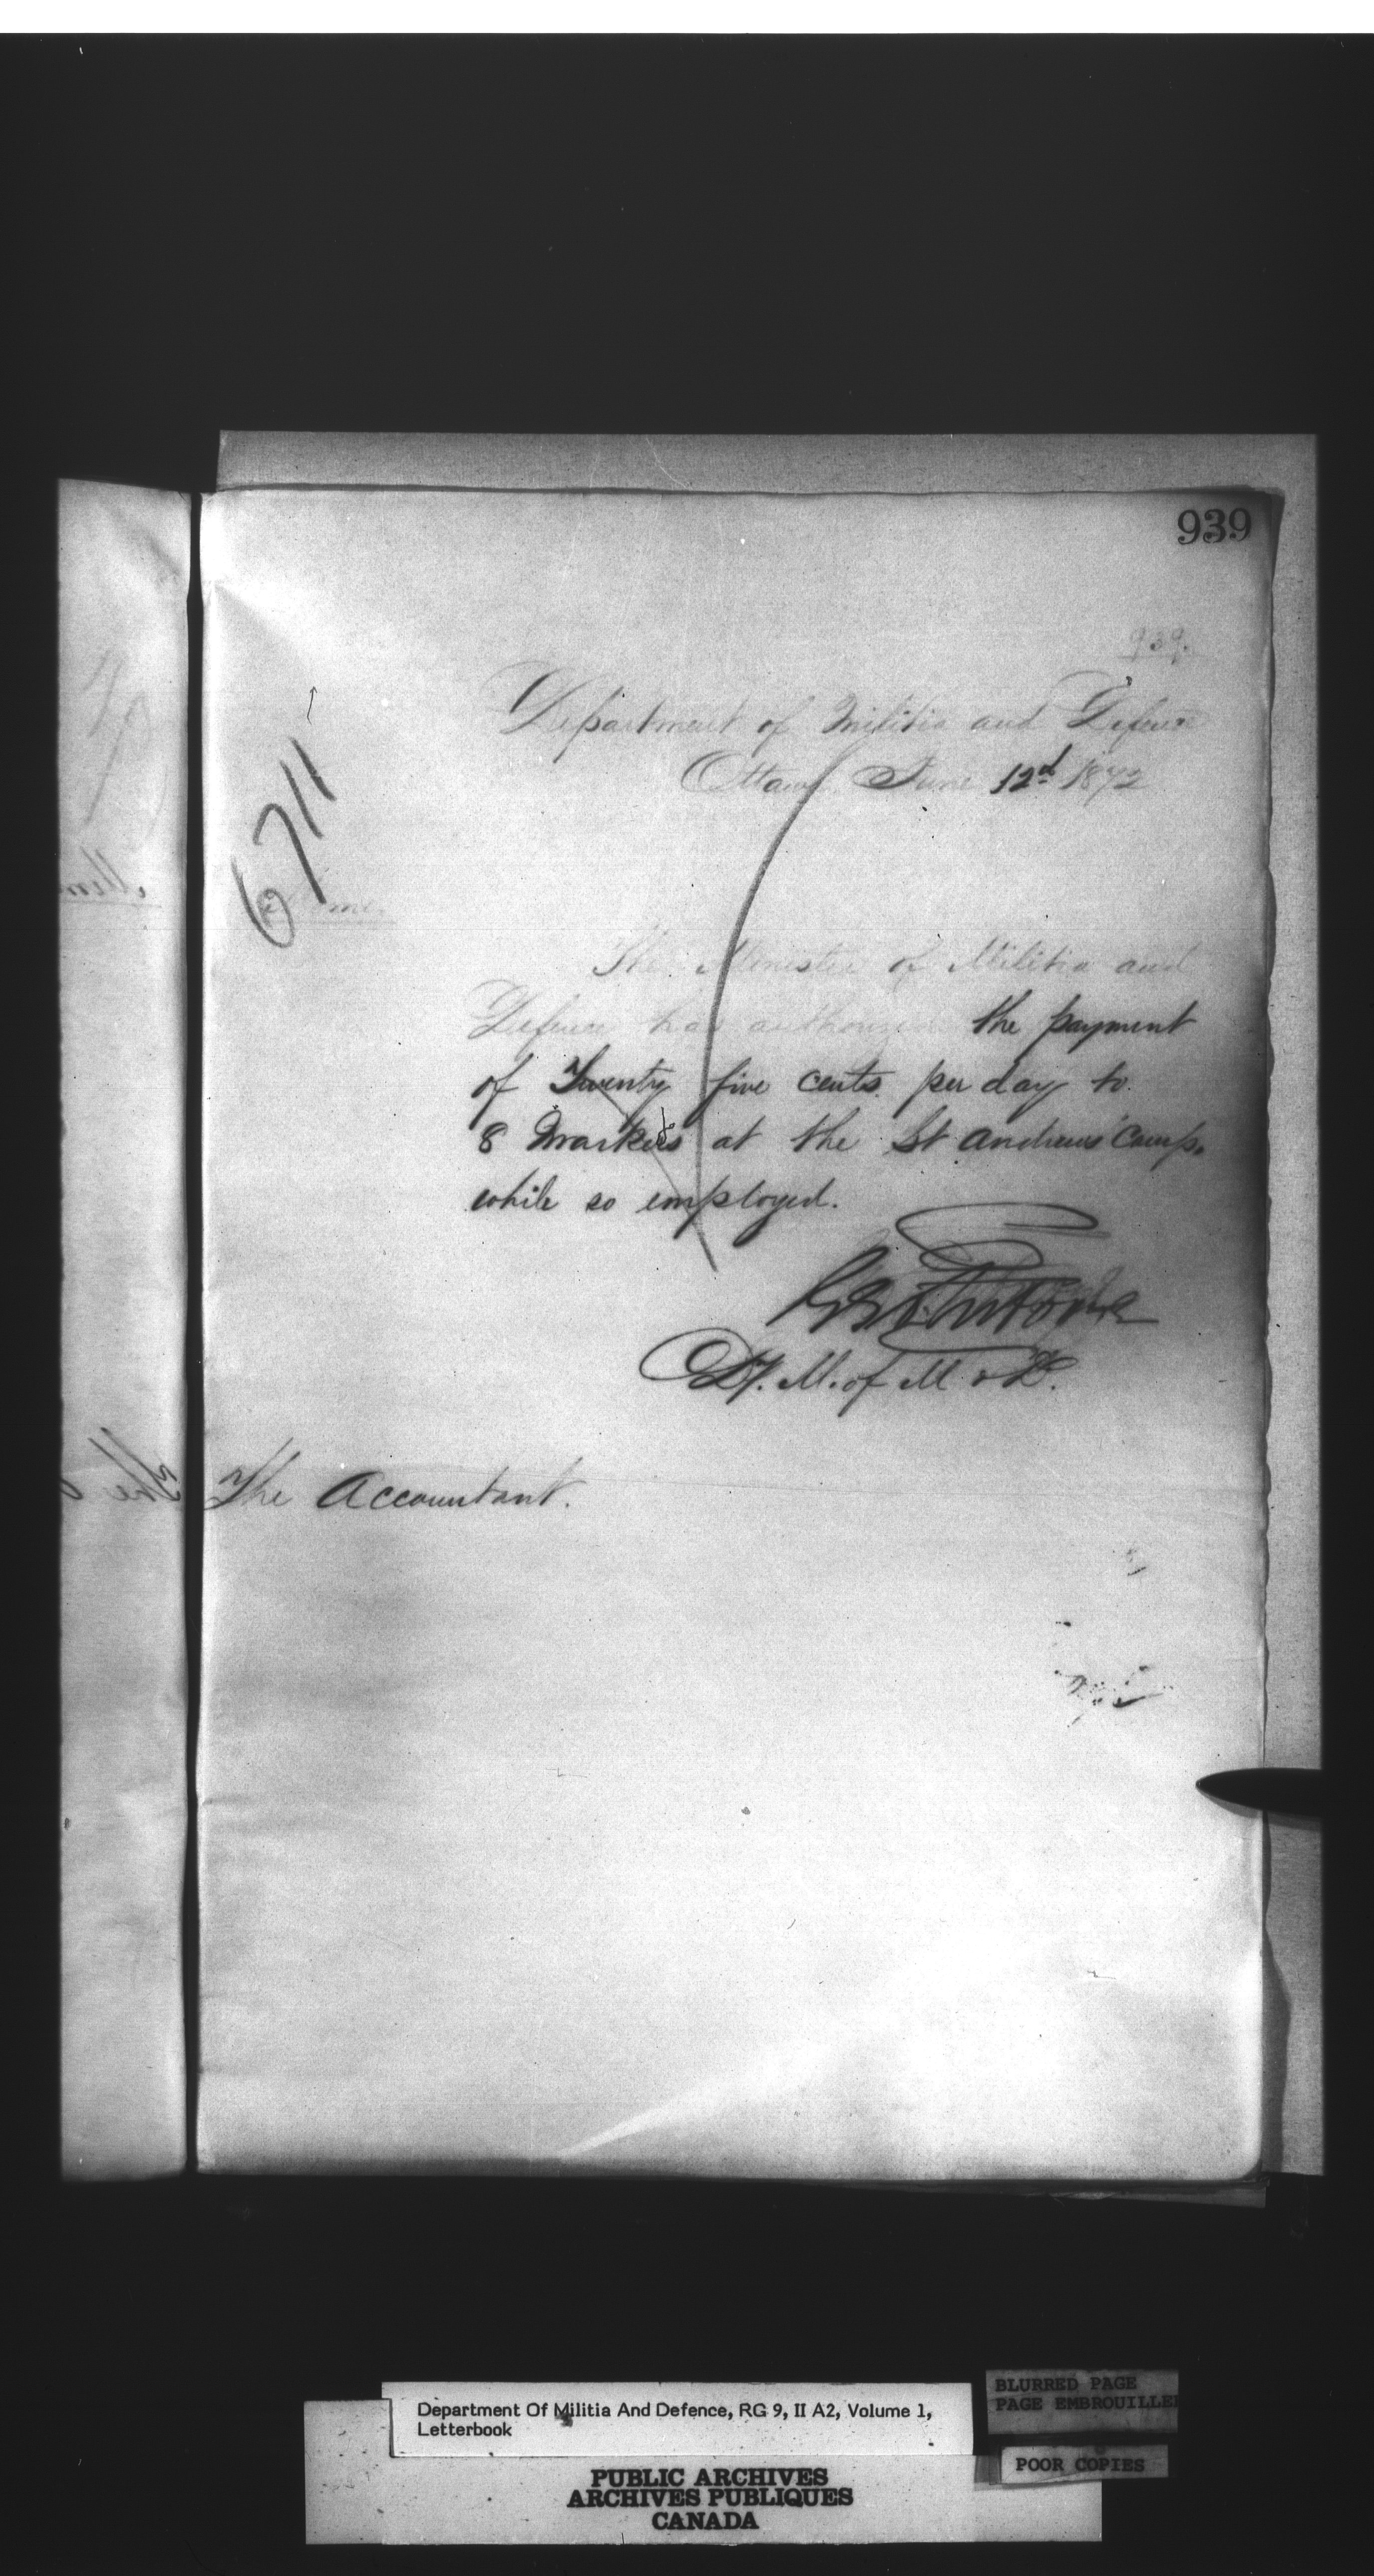 939
939.
Department of Militia and Defence
Ottawa June 12d 1872
6711
Memo.
The Minister of Militia and
Defence has authorized the payment
of Twenty five cents per day to
8 Markers at the St Andrews Camp.
while so employed.
Dy. M. of M & D.
The Accountant.
Department Of Militia And Defence, RG 9, II A2, Volume 1,
Letterbook
BLURRED PAGE
PAGE EMBROUILLEE
POOR COPIES
PUBLIC ARCHIVES
ARCHIVES PUBLIQUES
CANADA